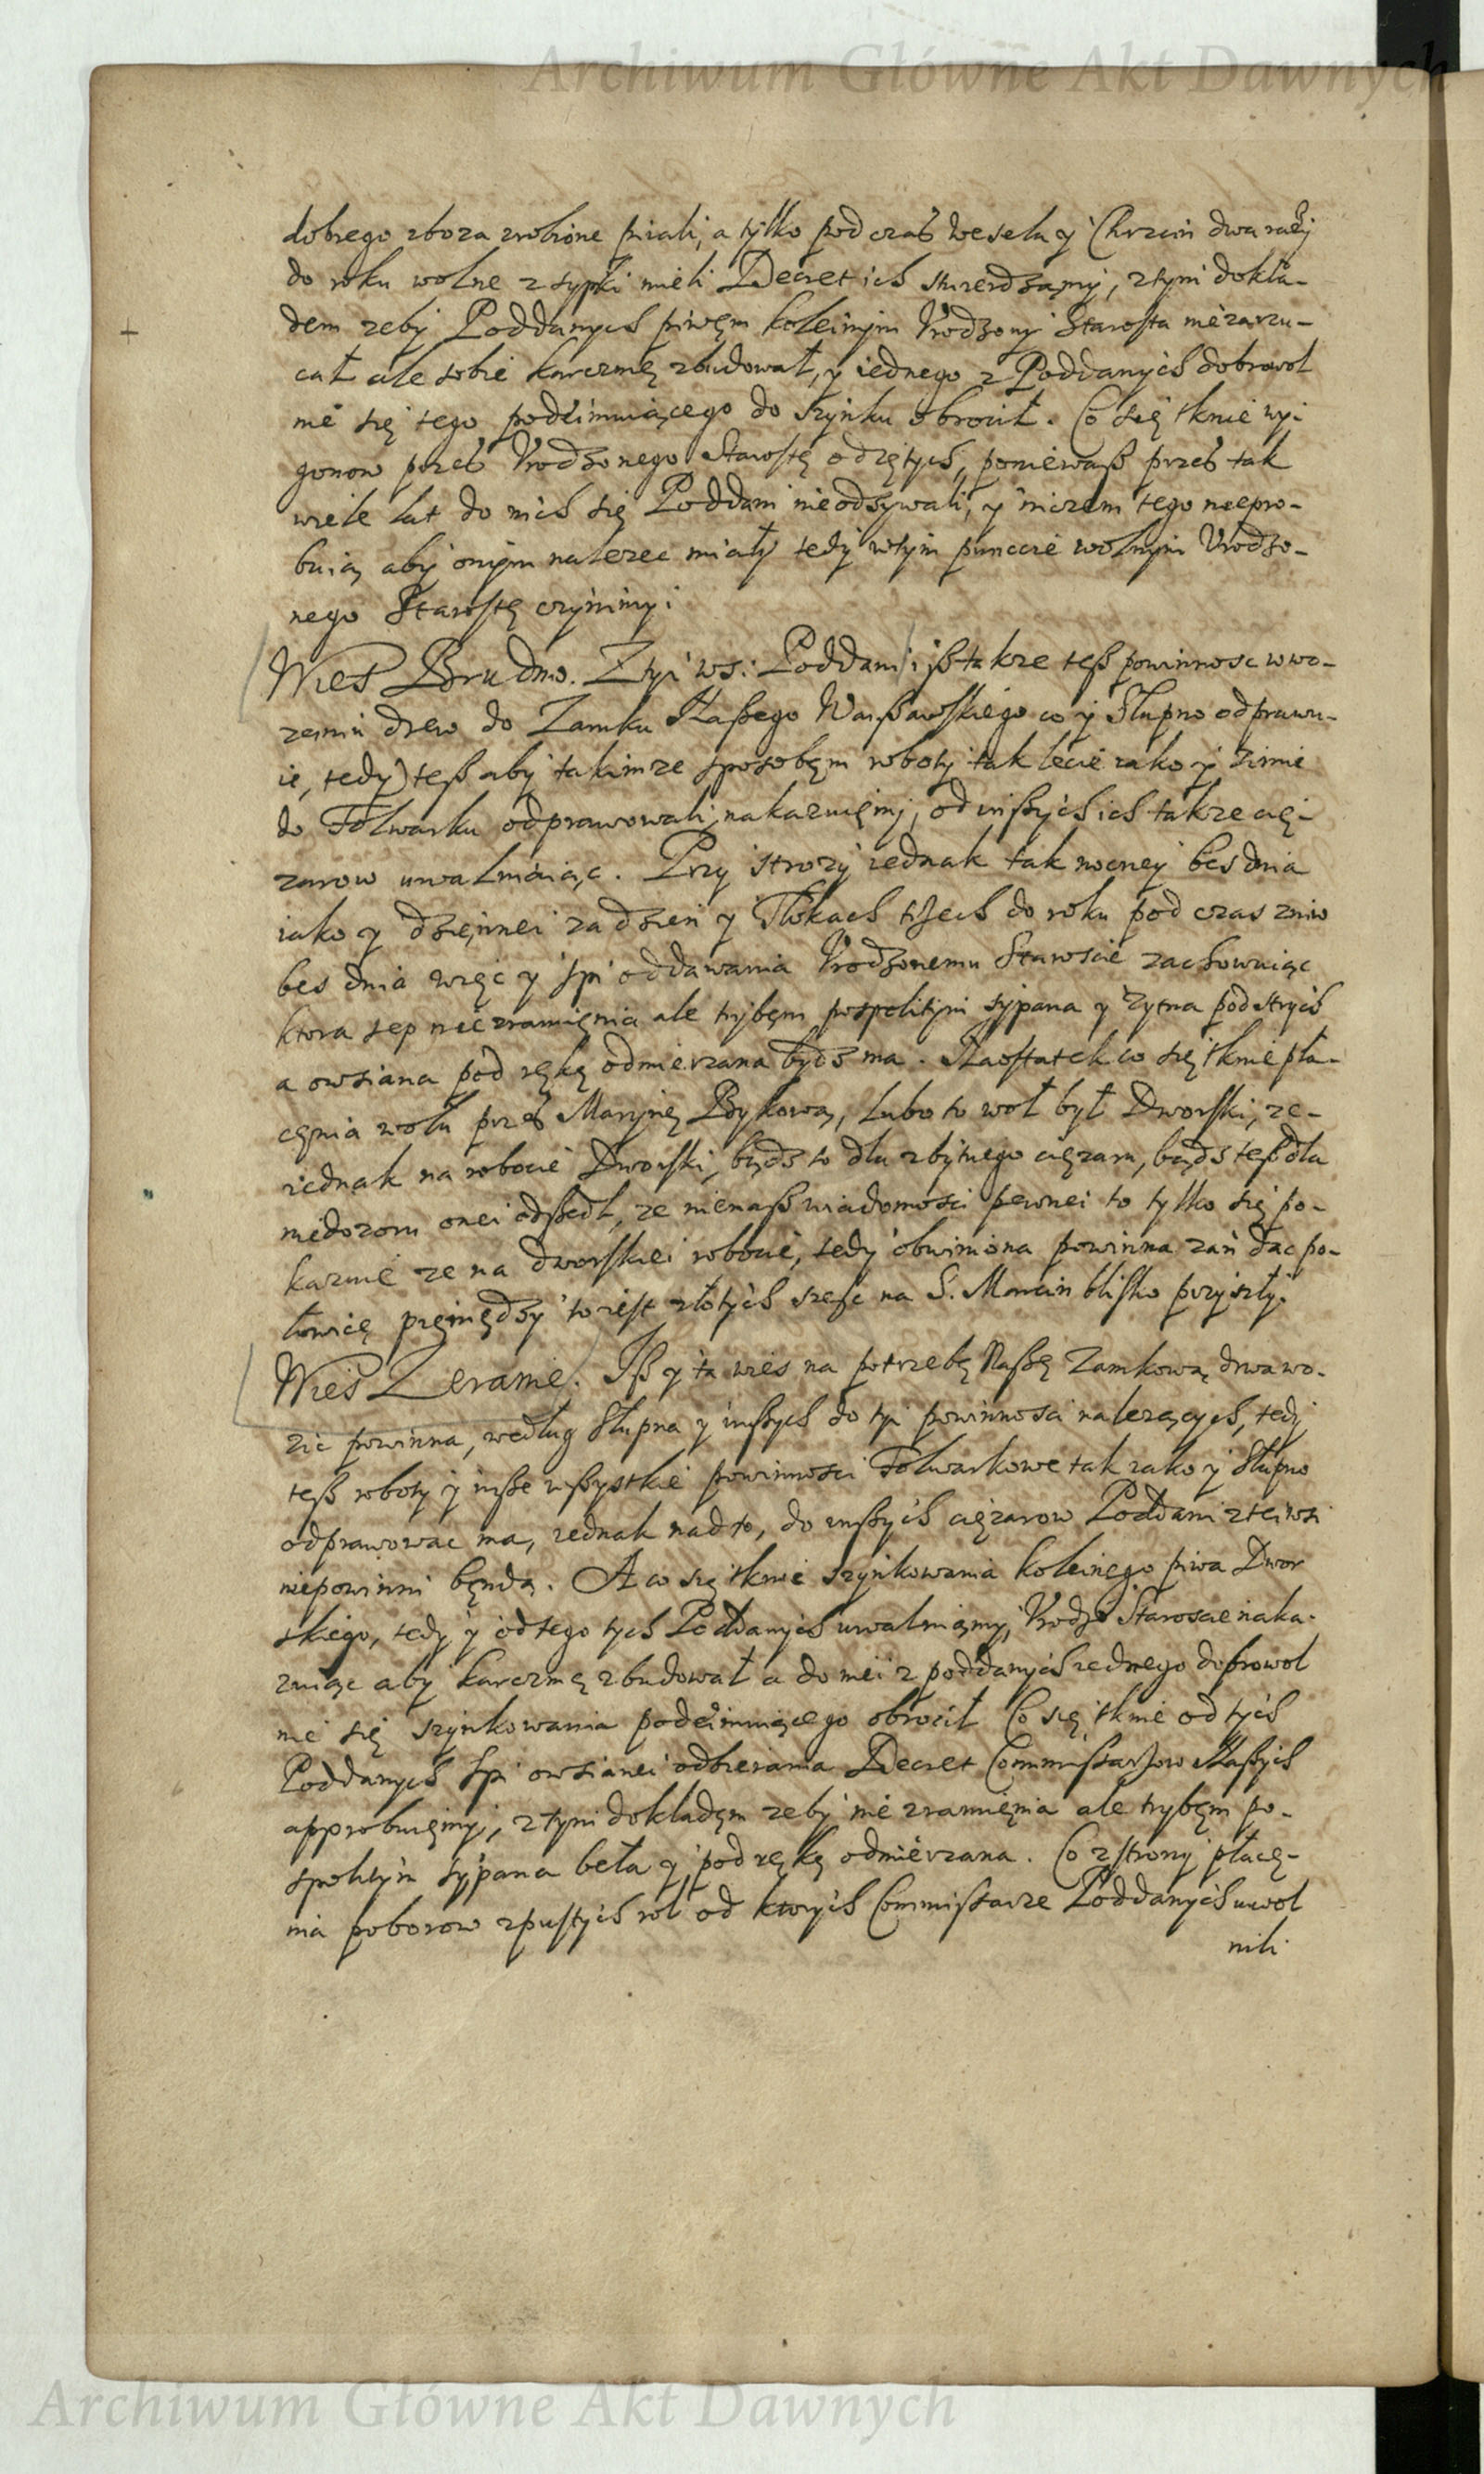 Archiwum Główne Akt Dawnych
dobrego zboza zrobione piiali, a tylko pod czas wesela y Chrzcin dwa razÿ
do roku wolne zsypki mieli Decret ich stwierdzamÿ, z tÿm dokła-
dem zebÿ Poddanych piwem koleinÿm Vrodzonÿ Starosta nie zarzu-
cał ale sobie karczmę zbudował, y iednego z Poddanÿch dobrowol
nie się tego podeimuiącego do szÿnku obrocił. Co się tknie wÿ-
gonow przes Vrodzonego Starostę odiętÿch, poniewasz przes tak
wiele lat do nich się Poddani nieodzÿwali, y niczem tego nie pro-
buią abÿ onÿm nalezec miałÿ tedÿ w tÿm punccie wolnÿm Vrodzo-
nego Starostę czÿnimÿ.
Wies Brudno. Z tÿ ws: Poddani isz takze tesz powinnosc w wo-
zeniu drew do Zamku Naszego Warszawskiego co ÿ Słupno odprawu-
ie, tedÿ tesz abÿ takimze sposobem robotÿ tak lecie iako ÿ zimie
do Folwarku odprawowali nakazuięmÿ, od inszÿch ich takze cię-
zarow uwalniaiąc. Przÿ strozÿ iednak tak nocneÿ bes dnia
iako y dzięnnei za dzień y Tłokach trzech do roku pod czas zniw
bes dnia więc y spÿ oddawania Vrodzonemu Staroscie zachowuiąc
ktora sep nie zramięnia ale trÿbęm pospolitÿm sÿpana y zÿtna pod strÿch
a owsiana pod ręką odmierzana bydz ma. Naostatek co się tknie pła-
cęnia wołu przes Marÿnę Bykową, lubo to woł był Dworski, ze-
iednak na robocie Dworski, bądz to dla zbÿtnego cięzaru, bądz tesz dla
niedozoru onei odszedł, ze niemasz wiadomosci pewnei to tylko się po-
kazuie ze na dworskiei robocie, tedÿ obwiniona powinna zań dac po-
łowicę pięniędzÿ to iest złotÿch szesc na S. Marcin blisko przÿszłÿ.
Wies Zeranie. Isz y ta wies na potrzebę Naszę Zamkową drwa wo-
zic powinna, według Słupna y inszÿch do tÿ powinnosci nalezącÿch, tedÿ
tesz robotÿ ÿ insze wszÿstkie powinnosci Folwarkowe tak iako ÿ Słupno
odprawowac ma, iednak nad to, do inszÿch cięzarow Poddani z tei wsi
niepowinni będą. A co się tknie szÿnkowania koleinego piwa Dwor
skiego, tedÿ ÿ od tego tÿch Poddanÿch uwalniamÿ, Vrodzo Staroscie naka-
zuiąc abÿ karczmę zbudował a do niei z poddanÿch iednego dobrowol
nie się szÿnkowania podeimuiącego obrocił Co się tknie od tÿch
Poddanÿch spÿ owsianei odbierania Decret Commissarzow Naszÿch
approbuięmÿ, z tÿm dokladęm zebÿ nie zramięnia ale trÿbęm po-
spolitÿm sÿpana beła ÿ pod ręką odmierzana. Co z stronÿ płacę-
nia poborow z pustÿch rol od ktorÿch Commissarze Poddanÿch uwol
nili
Archiwum Główne Akt Dawnych